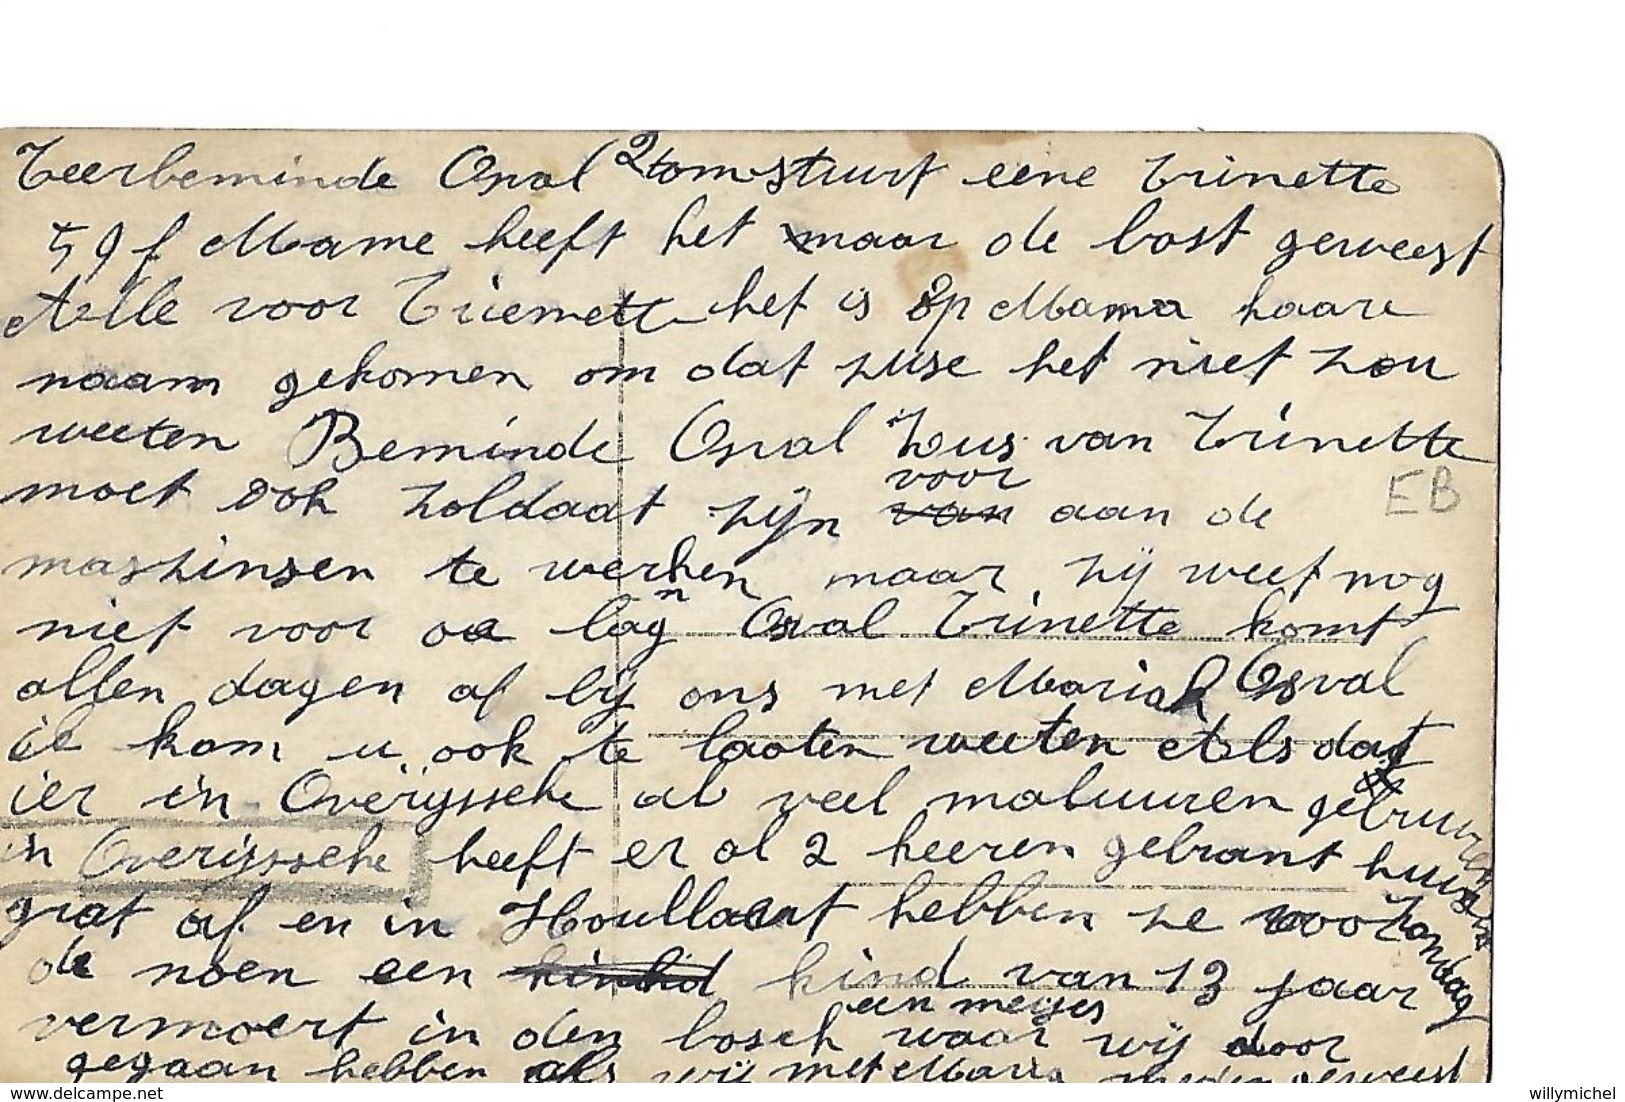 Teerbeminde Osval 2 stuurt eene Trinette
59 f Mame heeft het maar de bost geweest
Aelle voor Triemette het is op Mama haare
naam gekomen om dat zuse het niet zou
weeten Beminde Osval Zus van Trinette
moet ook zoldaat zijn voor van aan de
maszinsen te werken maar zij weet nog
niet voor oe lagn Osval Trinette komt
allen dagen af bij ons met Maria Osval
ik kom u ook te laaten weeten als dat
ier in Overijssche al veel maluuren gebeuren
in Overijssche heeft er al 2 keeren gebrant
grat af en in Houllaert hebben ze voor Zondag
de noen een kind van 13 jaar
een meijes
vermoert in den bosch waar wij door
gegaan hebben als wij met Maria geweest
EB
delcampe.net
willymichel